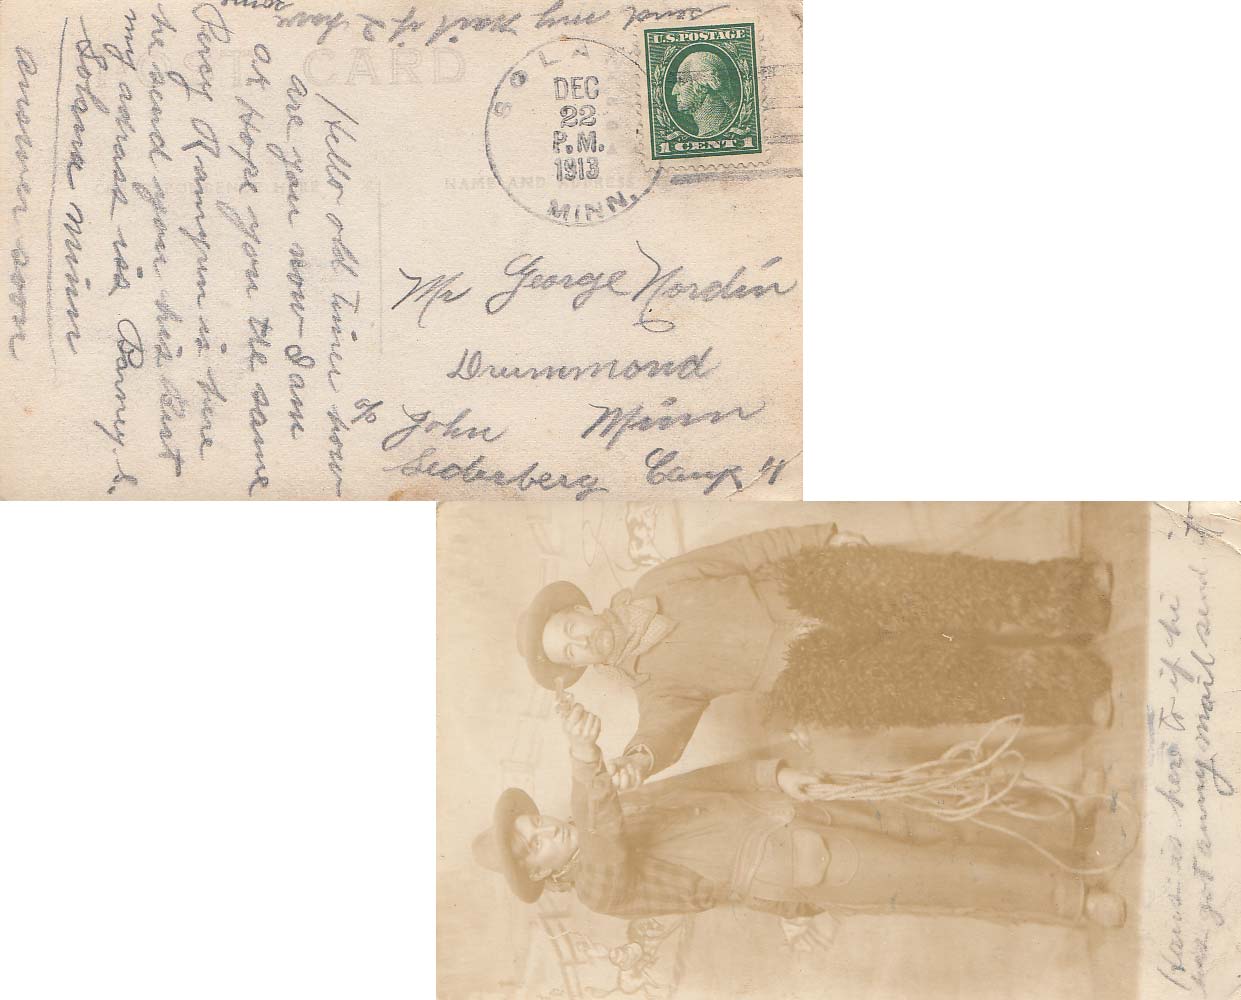 POST CARD
NAME AND ADDRESS
SOLANA
DEC
22
P.M.
1913
MINN.
U.S. POSTAGE
1 CENT 1
Mr George Nordin
Drummond
Minn
c/o John
Sederberg Camp 4
Hello old timer how
are you now I am
ok Hope you the same
Percy is here
he send you his Best
my adrass iss Barney S.
Solana Minn
answer soon
send my mail if I have
some
is here to if he
has got anny mail send it